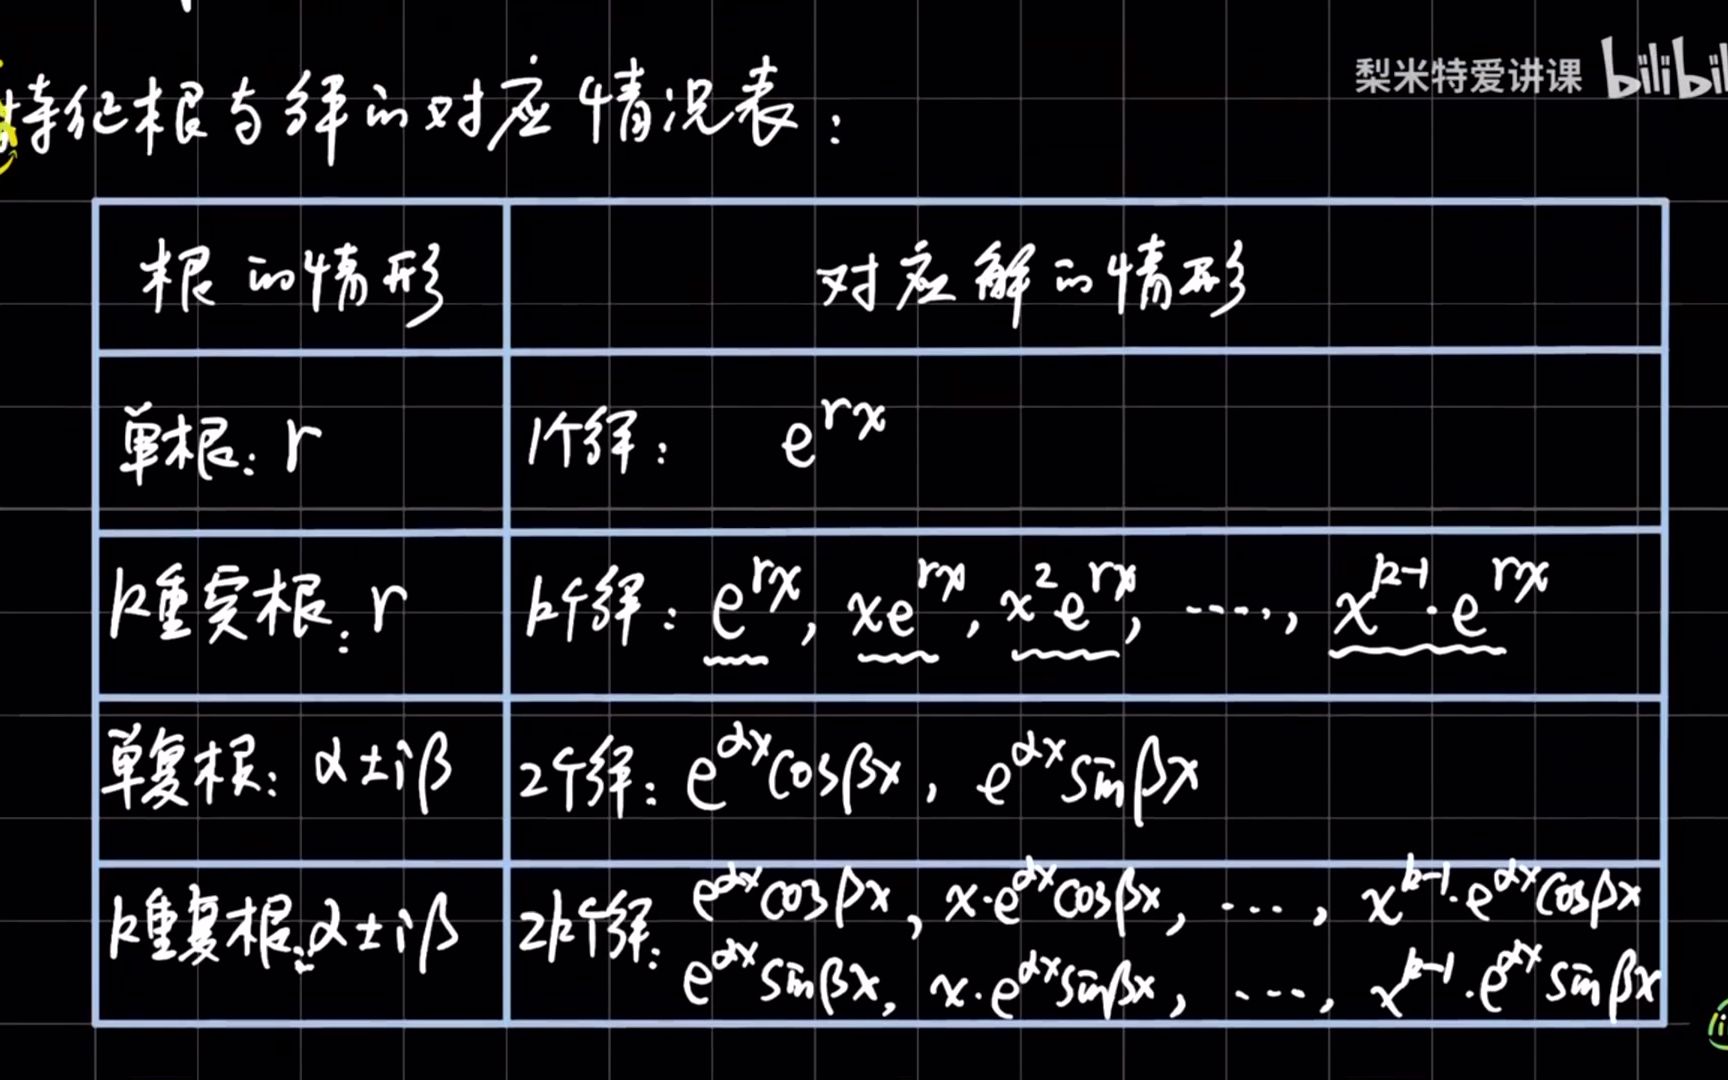 梨米特爱讲课 bilibil
特征根与解的对应情况表：
根的情形 对应解的情形
单根：r 1个解： e^{rx}
k重实根：r k个解：e^{rx}, xe^{rx}, x^2e^{rx}, ……, x^{k-1}·e^{rx}
单复根：α±iβ 2个解：e^{αx}cosβx, e^{αx}sinβx
k重复根：α±iβ 2k个解：e^{αx}cosβx, x·e^{αx}cosβx, …, x^{k-1}·e^{αx}cosβx
e^{αx}sinβx, x·e^{αx}sinβx, …, x^{k-1}·e^{αx}sinβx